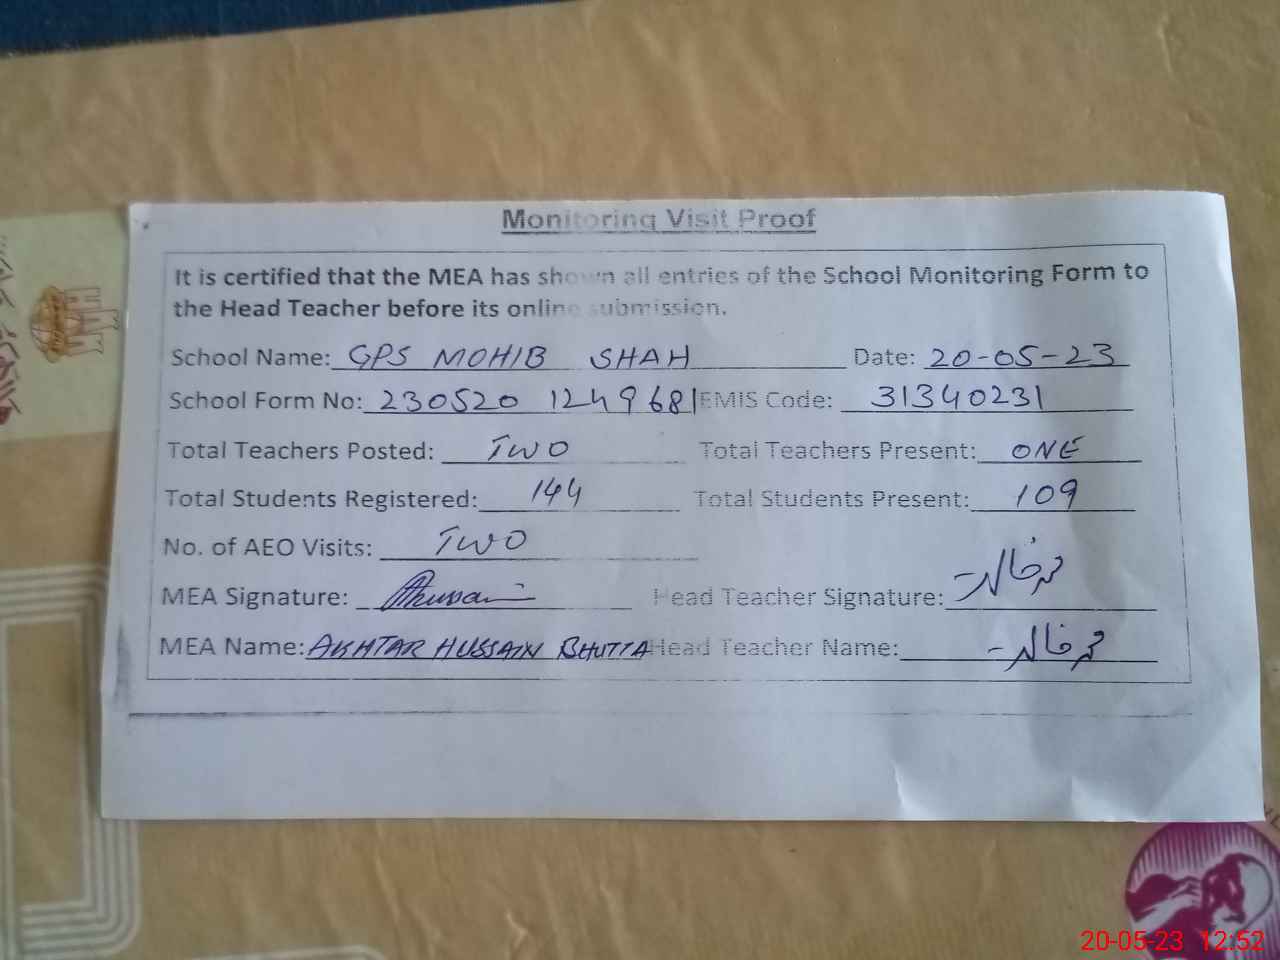 Monitoring Visit Proof
It is certified that the MEA has shown all entries of the School Monitoring Form to
the Head Teacher before its online submission.
School Name: GPS MOHIB SHAH Date: 20-05-23
School Form No: 230520 1249681 EMIS Code: 31340231
Total Teachers Posted: TWO Total Teachers Present: ONE
Total Students Registered: 144 Total Students Present: 109
No. of AEO Visits: TWO
MEA Signature: AHussain Head Teacher Signature: محمد خالد
MEA Name: AKHTAR HUSSAIN BHUTTA Head Teacher Name: محمد خالد
20-05-23 12:52